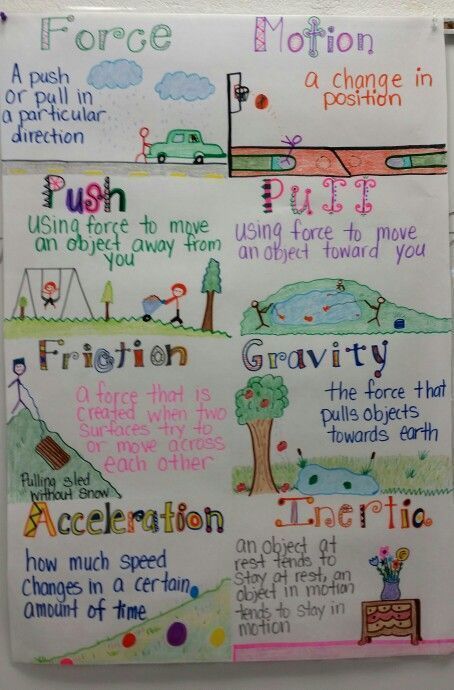 Force
A push
or pull in
a particular
direction
Motion
a change in
position
Push
Using force to move
an object away from
you
Pull
using force to move
an object toward you
Friction
a force that is
created when two
surfaces try to
or move across
each other
Pulling sled
without snow
Gravity
the force that
pulls objects
towards earth
Acceleration
how much speed
changes in a certain
amount of time
Inertia
an object at
rest tends to
stay at rest, an
object in motion
tends to stay in
motion